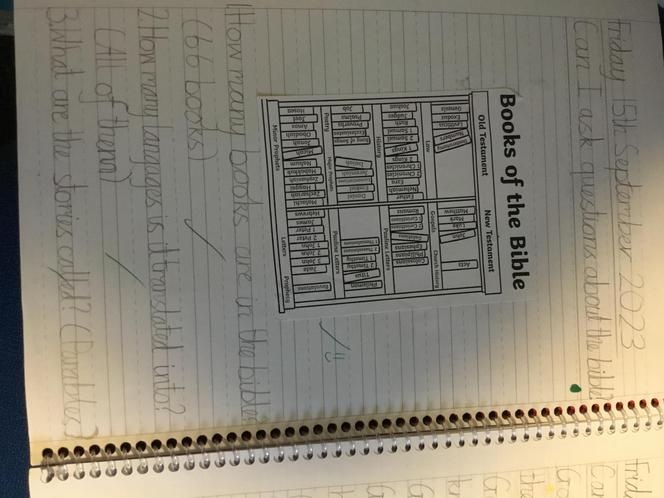 Friday 15th September 2023
Can I ask questions about the bible?
Books of the Bible
Old Testament
New Testament
Genesis
Exodus
Leviticus
Numbers
Deuteronomy
Law
Joshua
Judges
Ruth
1 Samuel
2 Samuel
1 Kings
2 Kings
1 Chronicles
2 Chronicles
Ezra
Nehemiah
Esther
History
Job
Psalms
Proverbs
Ecclesiastes
Song of Songs
Poetry
Isaiah
Jeremiah
Lamentations
Ezekiel
Daniel
Major Prophets
Hosea
Joel
Amos
Obadiah
Jonah
Micah
Nahum
Habakkuk
Zephaniah
Haggai
Zechariah
Malachi
Minor Prophets
Matthew
Mark
Luke
John
Gospels
Acts
Church History
Romans
1 Corinthians
2 Corinthians
Galatians
Ephesians
Philippians
Colossians
Pauline Letters
1 Thessalonians
2 Thessalonians
1 Timothy
2 Timothy
Titus
Philemon
Pauline Letters
Hebrews
James
1 Peter
2 Peter
1 John
2 John
3 John
Jude
Letters
Revelations
Prophecy
1) How many books are in the bible
(66 books)
2. How many languages is it translated into?
(All of them)
3. What are the stories called? (Parables)